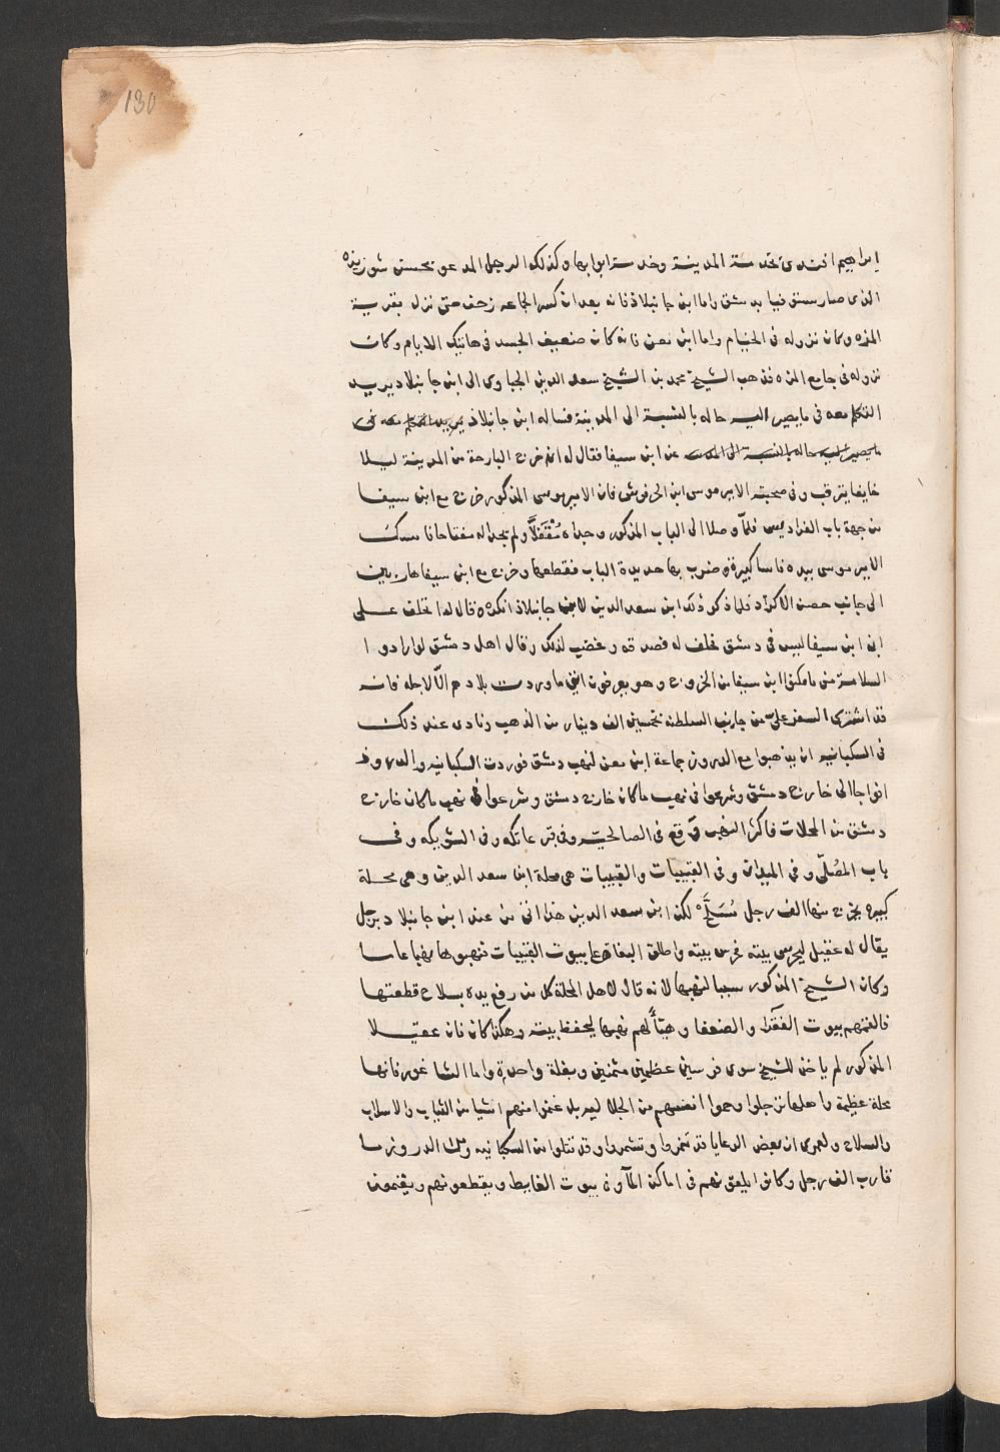 130
ابراهيم افندى بخدمة المدينة وخدمة ابوابها وكذلك الرجل المدعو بحسن شوربزه
الذى صار سببا بدمشق واما ابن جانبلاذ فانه بعد ان كسر الجماعه زحف حتى نزل بقرية
المزه وكان نزوله فى الخيام واما ابن معن فانه كان ضعيف الجسد فى هاتيك الايام وكان
نزوله فى جامع المزه فذهب الشيخ محمد بن الشيخ سعد الدين الجباوى الى ابن جانبلاذ يريد
التكلم معه فى ما يصير اليه حاله بالنسبة الى المدينة فساله ابن جانبلاذ يريد التكلم معه فى
ما يصير اليه حاله بالنسبة الى المدينة عن ابن سيفا فقال له انه خرج البارحة من المدينة ليلا
خايفا يترقب وفى صحبته الامير موسى ابن الحرفوش فان الامير موسى المذكور خرج مع ابن سيفا
من جهة باب الفراديس فلمّا وصلا الى الباب المذكور وجداه مُقْفَلاً ولم يجدا له مفتاحا فامسك
الامير موسى بيده فاسا كبيرة وضرب بها حديدة الباب فقطعها وخرج مع ابن سيفا هاربين
الى جانب حصن الاكراد فلما ذكر ذلك ابن سعد الدين لابن جانبلاذ انكره وقال له اتحلف على
ان ابن سيفا ليس فى دمشق فحلف له فصدقه وغضب لذلك وقال اهل دمشق لو ارادوا
السلامة منى ما مكنوا ابن سيفا من الخروج وهو يعرفون اننى ما وردت بلادهم الّا لاجله فانه
قد اشترى السفر علىّ من جانب السلطنه بخمسين الف دينار من الذهب ونادى عند ذلك
فى السكبانيه ان يذهبوا مع الدروز جماعة ابن معن لنهب دمشق فوردت السكبانيه والدروز
افواجا الى خارج دمشق وشرعوا فى نهب ما كان خارج دمشق وشرعوا فى نهب ما كان خارج
دمشق من المحلات فاكثر النهب وقع فى الصالحية وفى قبر عاتكه وفى الشويكه وفى
باب المصُلّى وفى الميدان وفى القبيبات والقبيبات هى محلة ابن سعد الدين وهى محلة
كبيره يخرج منها الف رجل مُسَلَّح لكن ابن سعد الدين هذا اتى من عند ابن جانبلاد برجل
يقال له عقيل ليحرس بيته فحرس بيته واطلق البغاة على بيوت القبيبات فنهبوها نهبا عاما
وكان الشيخ المذكور سببا لنهبها لانه قال لاهل المحلة كل من رفع يده بسلاح قطعتها
فالغمهم بيوت الفقرآ والضعفا وهيّأ لهم نهبها ليحفظ بيته وهكذا كان فان عقيلا
المذكور لم ياخذ للشيخ سوى فرسين عظيمين مثمنين وبغلة واحدة واما الشاغور فانها
محلة عظيمة واهلها ترجلوا وحموا انفسهم من الجلاليه بل غنموا منهم اشيا من الثياب والاسلاب
والسلاح ولعمرى ان بعض الرعايا قد تنمروا وتشمروا وقد قتلوا من السكبانيه ومن الدروز ما
قارب الف رجل وكانوا يلعق نهم فى اماكن المآوة بيوت الغايط ويقطعونهم ويغنمون